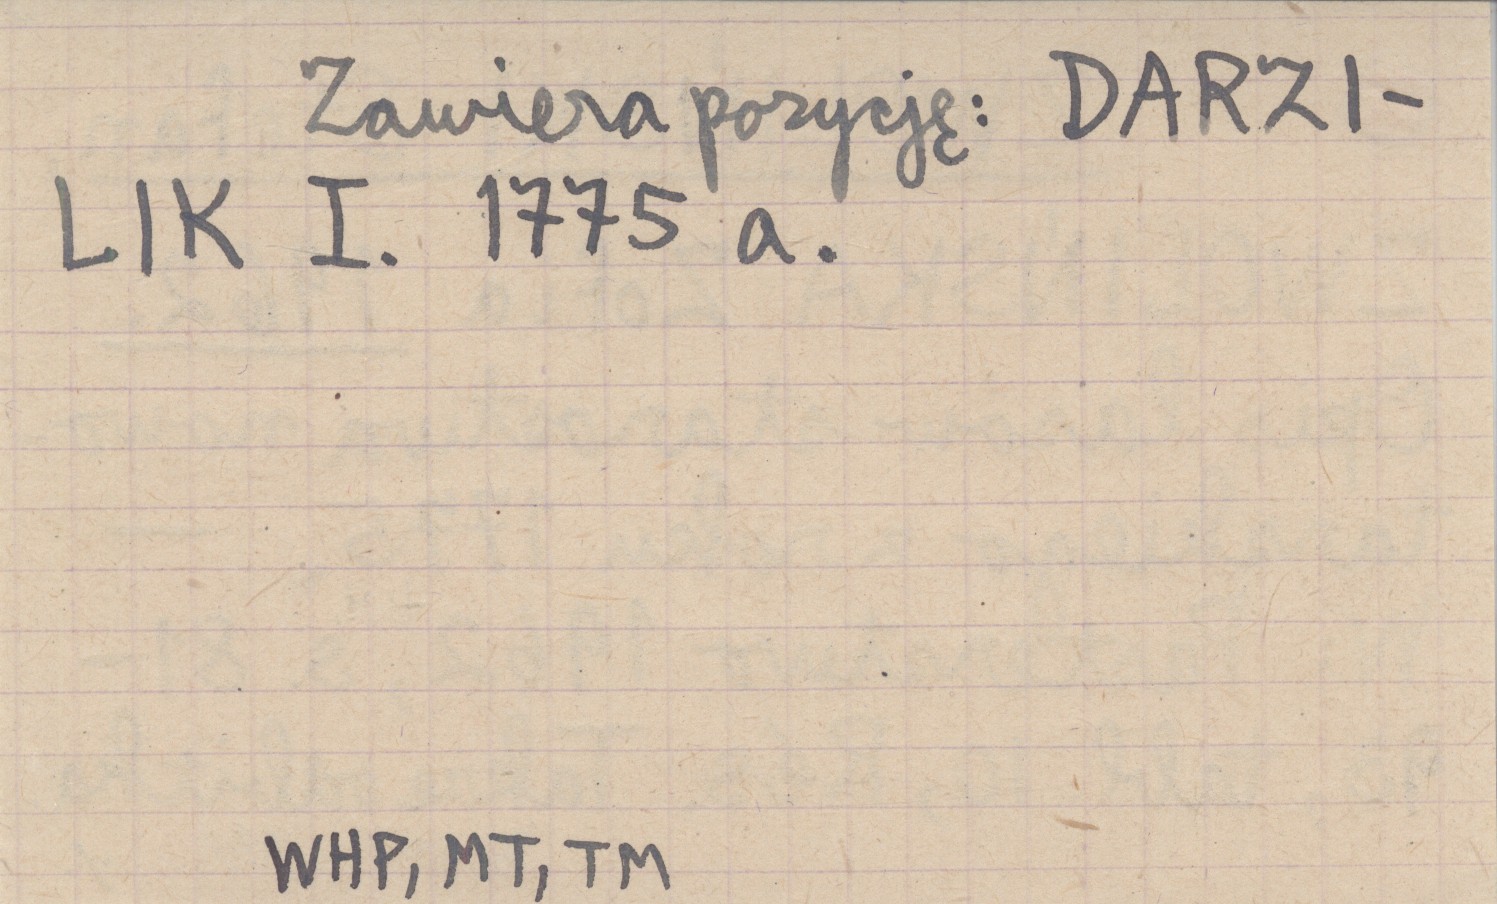 Zawiera pozycję: DARZI-
LIK I. 1775 a.
WHP, MT, TM